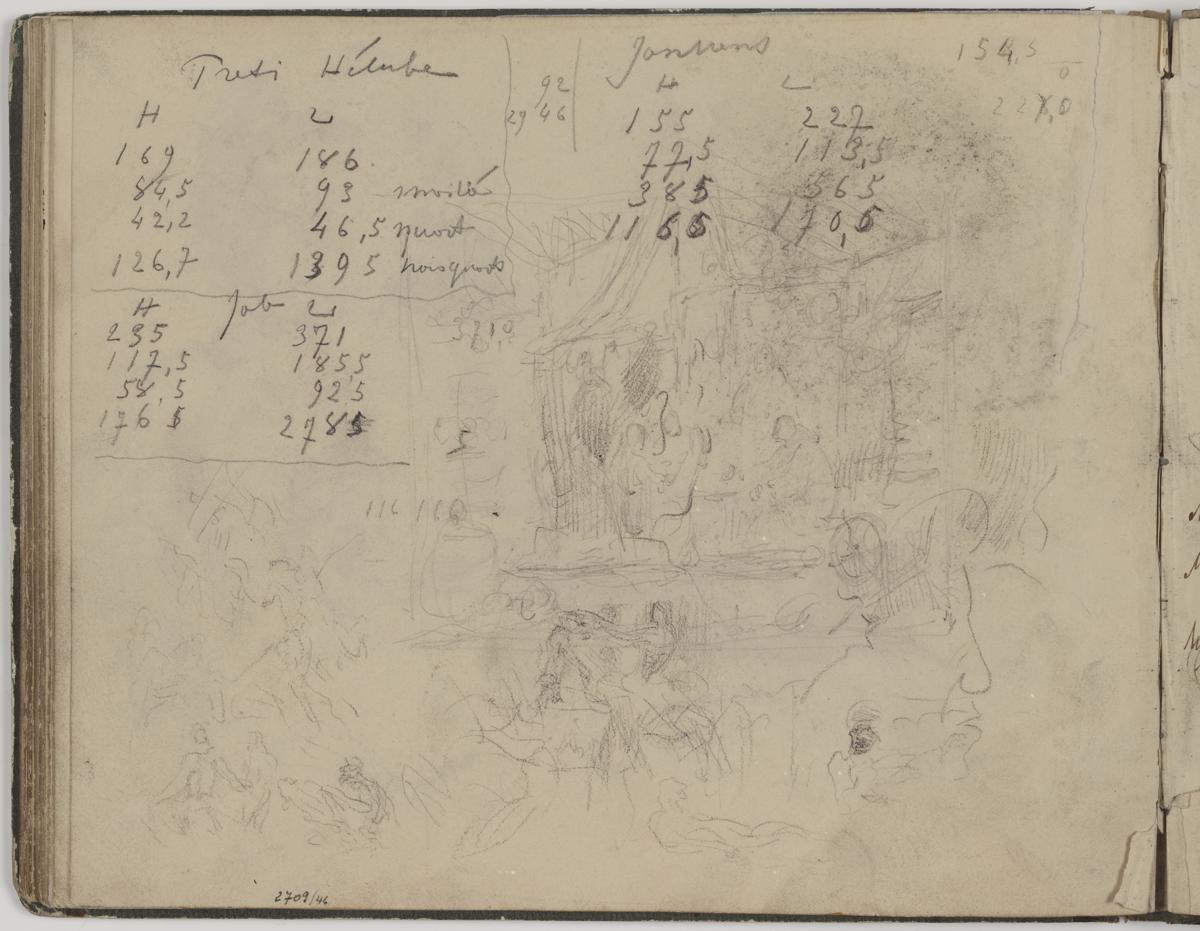 H L
169 186.
84,5 93 moitié
42,2 46,5 quart
126,7 1395 troisquart
H Job L
235 371
117,5 1855
58,5 925
1765 2785
92
29 46
H L
155 227
77,5 113,5
385 565
116,5 170,5
154,5
0
371,0
5
116 116
2709/46